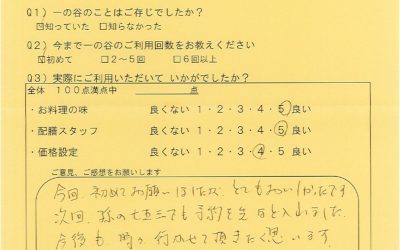 Q1) 一の谷のことはご存じでしたか?
☑知っていた □知らなかった
Q2) 今まで一の谷のご利用回数をお教えください
☑初めて □2～5回 □6回以上
Q3) 実際にご利用いただいて いかがでした?
全体 100点満点中 点
・お料理の味 良くない 1・2・3・4・5 良い
・配膳スタッフ 良くない 1・2・3・4・5 良い
・価格設定 良くない 1・2・3・4・5 良い
ご意見、ご感想をお願いします
今回、初めてお願いしましたが、とてもおいしかったです
次回、孫の七五三でも予約を
今後も 時々 行かせて頂きたく思います。